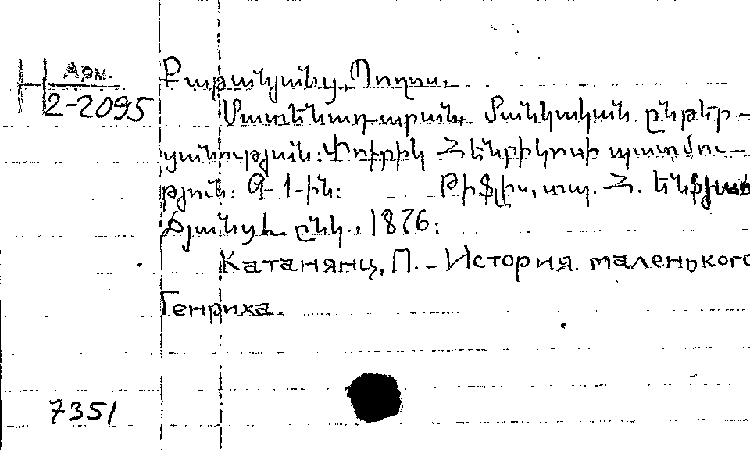 Арм.
2-2095
Քաթանյանց, Պողոս.
Մատենադարան մանկական ընթեր-
ցանության: Փոքրիկ Հենրիկոսի պատմու-
թյուն: Գ. 1-ին: Թիֆլիս, տպ. Հ.
ընկ., 1876:
Катанянц, П. - История маленького
Генриха.
7351